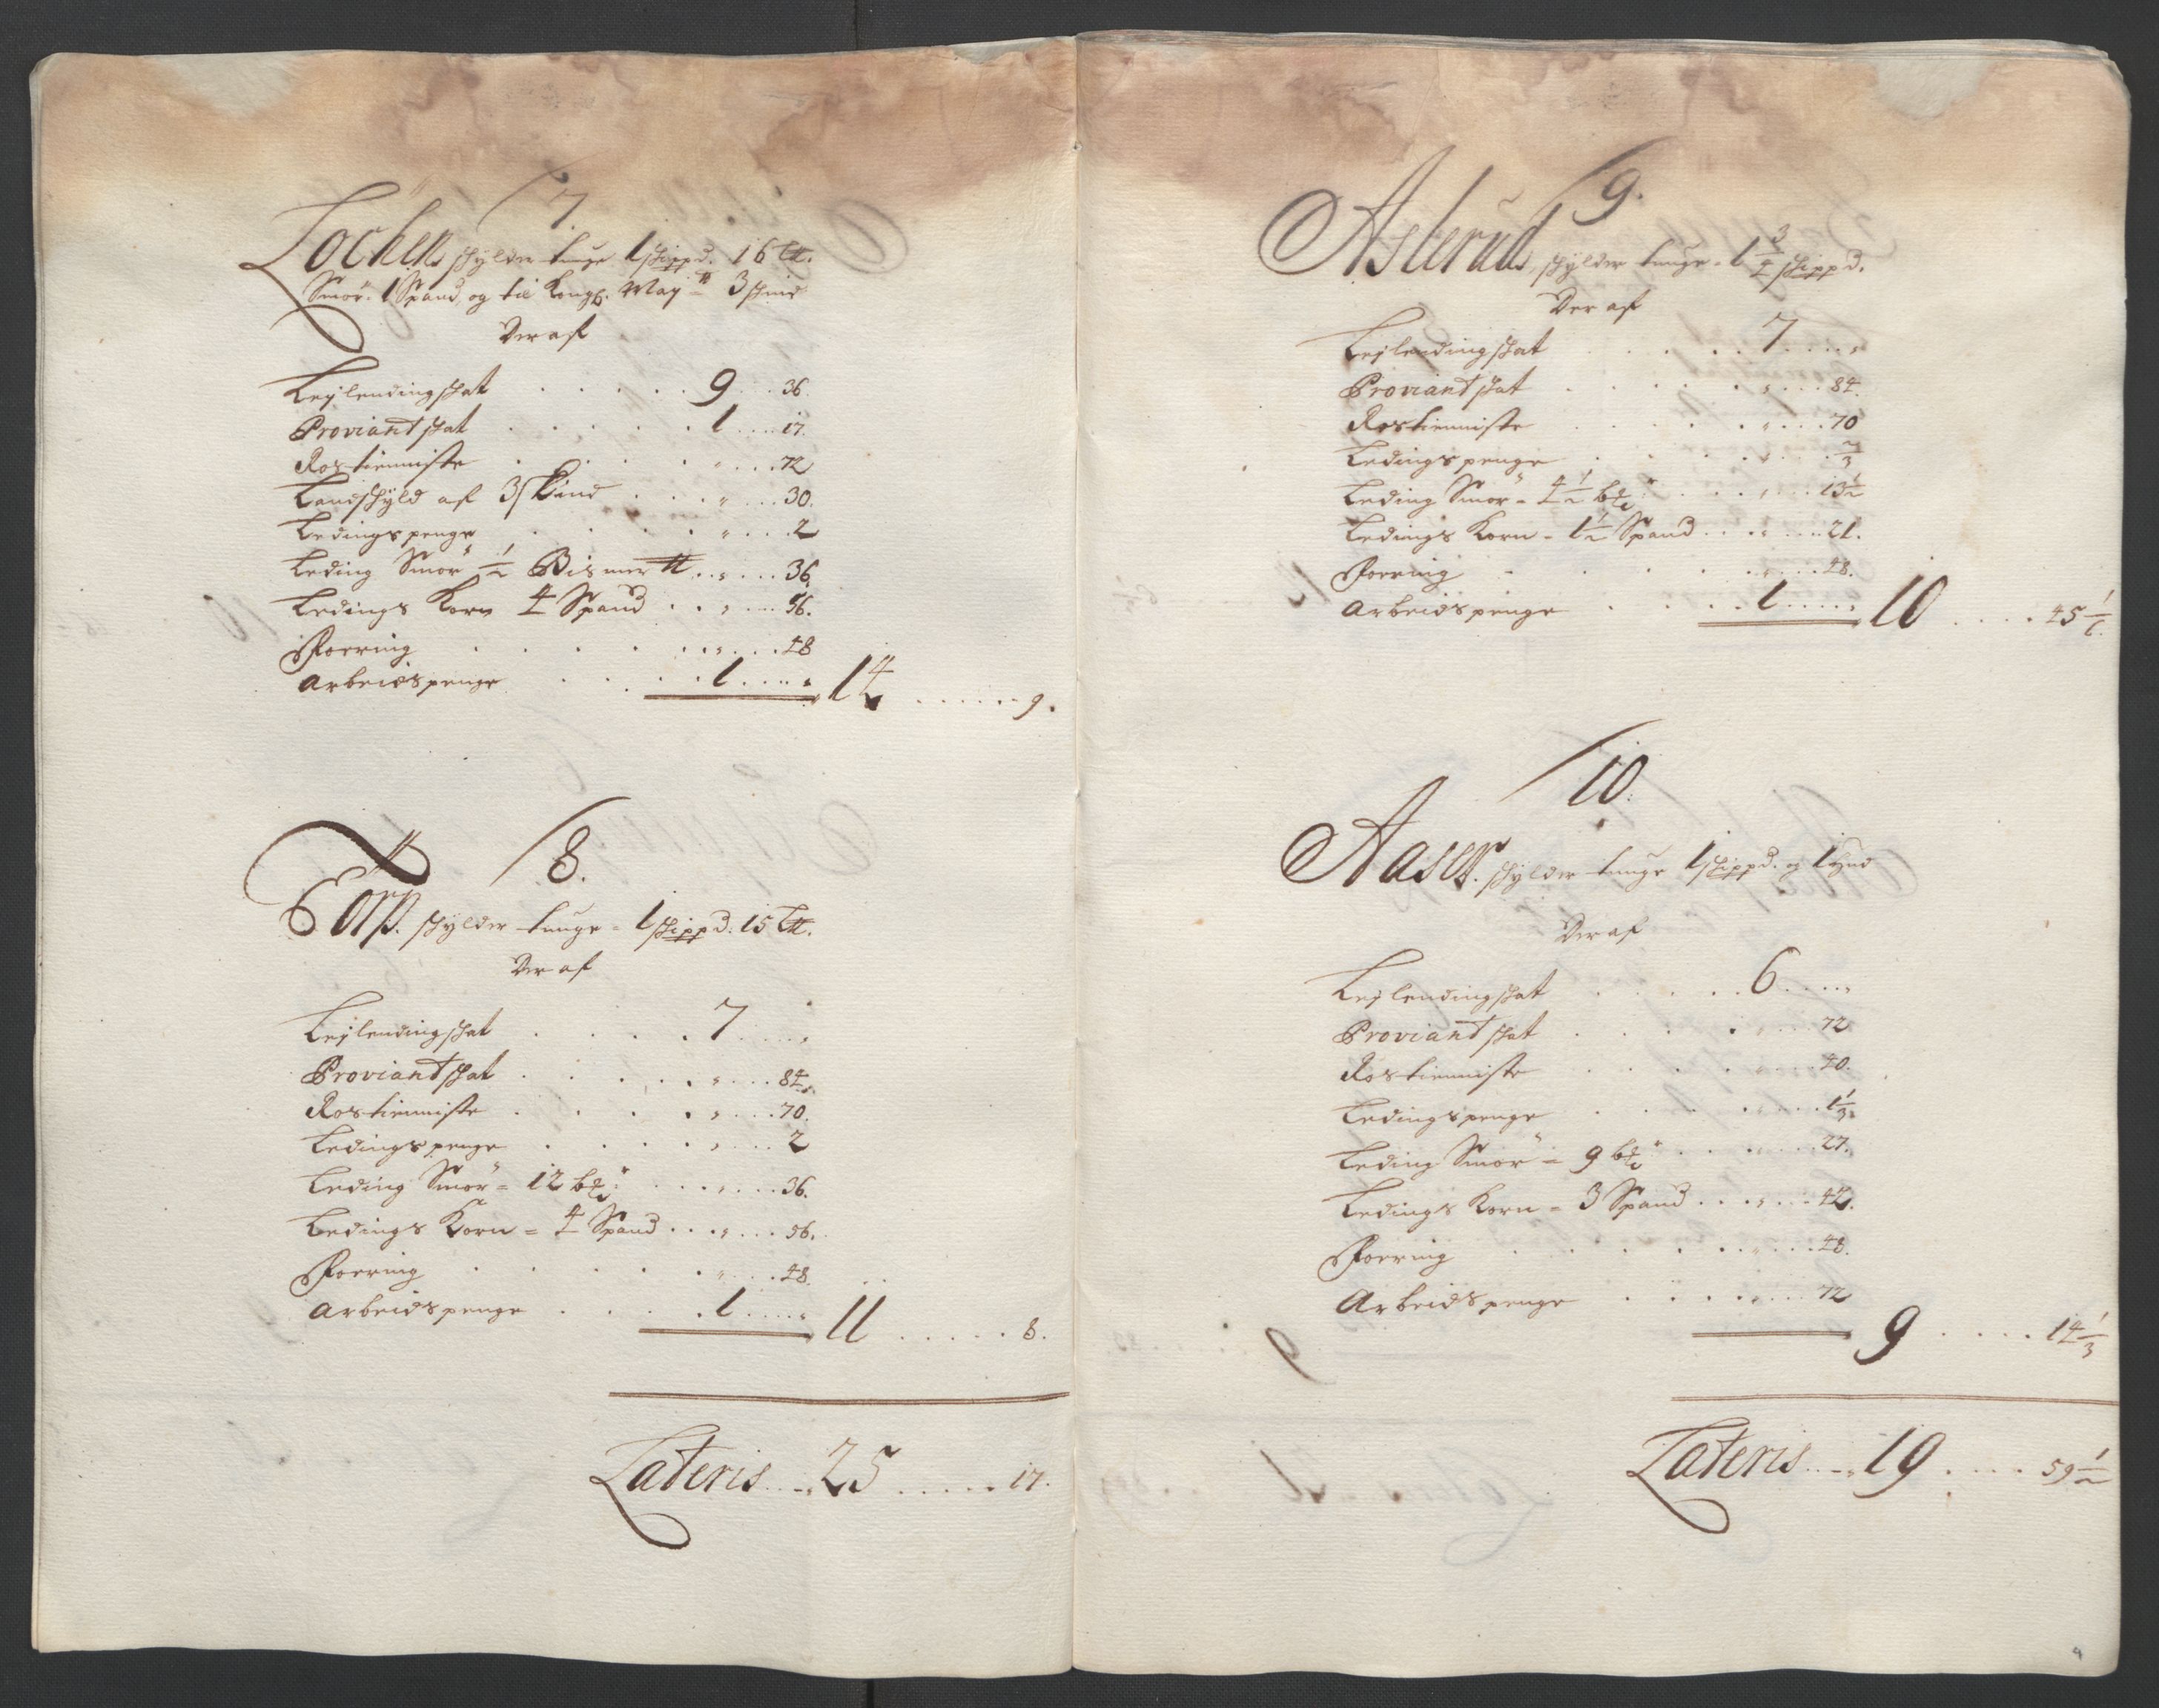 7.
Löchen skylder tunge 1 skippd. 16 ℔.
Smör 1 Spand, og til Kongl. May:tt 3 skind
Der af
Leylendingskat . . . . . 9 . . . 36.
Proviantskat . . . . . 1 . . . 17.
Rostienniste . . . . „ . . . 72
Landskyld af 3 skind . . . „ . . . 30.
Ledingspenge . . . . „ . . . 2
Leding Smör ½ Bismer ℔ . . „ . . . 36.
Ledings Korn 4 Spand . . „ . . . 56.
Foering . . . . . . „ . . . 48
Arbeidspenge . . . . 1 . . . „ 14 . . . . . . 9.
8.
Torp. skylder tunge = 1 skippd. 15 ℔.
Der af
Leylendingskat . . . . 7 . . . „
Proviantskat . . . . . „ . . . 84.
Rostienniste . . . . „ . . . 70.
Ledingspenge . . . . „ . . . 2
Leding Smör = 12 bd: . . . „ . . . 36.
Ledings Korn = 4 Spand . . . „ . . . 56.
Foering . . . . . „ . . . 48.
Arbeidspenge . . . . 1 . . . „ 11 . . . . . 8.
Lateris . . . 25 . . . . . 17.
9.
Asterud, skylder tunge = 1¾ skippd.
Der af
Leylendingskat . . . . 7 . . . „
Proviantskat . . . . . „ . . . 84.
Rostienniste . . . . . „ . . . 70
Ledingspenge . . . . „ . . . ⅔
Leding Smör = 4½ bd: . . . „ . . . 13½
Ledings Korn = 1½ Spand . . . „ . . . 21.
Foering . . . . . „ . . . 48.
Arbeidspenge . . . . 1 . . . „ 10 . . . . 45 1/6.
10.
Aaser. skylder tunge 1 skippd. og 1 hud
Der af
Leylendingskat . . . . 6 . . . „
Proviantskat . . . . . . . 72
Rostienniste . . . . . . . 40.
Ledingspenge . . . . . . . 1⅓.
Leding Smör = 9 bd: . . . . . . 27.
Ledings Korn = 3 Spand . . . „ . . . 42.
Foering . . . . . . „ . . . 48.
Arbeidspenge . . . . . „ . . . 72
9 . . . . 14⅓
Lateris . . . 19 . . . . 59½